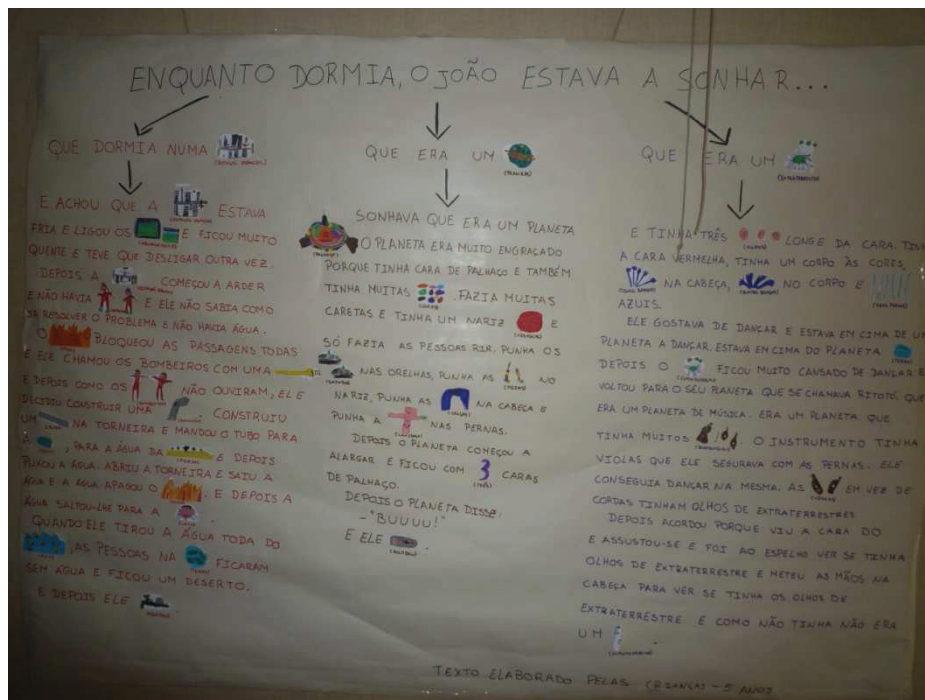 ENQUANTO DORMIA, O JOÃO ESTAVA A SONHAR...
QUE DORMIA NUMA
E ACHOU QUE A ESTAVA
FRIA E LIGOU OS E FICOU MUITO
QUENTE E TEVE QUE DESLIGAR OUTRA VEZ.
DEPOIS A COMEÇOU A ARDER
E NÃO HAVIA E ELE NÃO SABIA COMO
IA RESOLVER O PROBLEMA E NÃO HAVIA ÁGUA.
O BLOQUEOU AS PASSAGENS TODAS
E ELE CHAMOU OS BOMBEIROS COM UMA
E DEPOIS COMO OS NÃO OUVIRAM, ELE
DECIDIU CONSTRUIR UMA . CONSTRUIU
UM NA TORNEIRA E MANDOU O TUBO PARA
A , PARA A ÁGUA DA E DEPOIS
PUXOU A ÁGUA. ABRIU A TORNEIRA E SAIU A
ÁGUA E A ÁGUA APAGOU O . E DEPOIS A
ÁGUA SALTOU-LHE PARA A .
QUANDO ELE TIROU A ÁGUA TODA DO
, AS PESSOAS NA FICARAM
SEM ÁGUA E FICOU UM DESERTO.
E DEPOIS ELE .
QUE ERA UM
(PLANETA)
SONHAVA QUE ERA UM PLANETA
O PLANETA ERA MUITO ENGRAÇADO
PORQUE TINHA CARA DE PALHAÇO E TAMBÉM
TINHA MUITAS . FAZIA MUITAS
CARETAS E TINHA UM NARIZ E
SÓ FAZIA AS PESSOAS RIR. PUNHA OS
NAS ORELHAS, PUNHA AS NO
NARIZ, PUNHA AS NA CABEÇA E
PUNHA A NAS PERNAS.
DEPOIS O PLANETA COMEÇOU A
ALARGAR E FICOU COM 3 CARAS
DE PALHAÇO.
DEPOIS O PLANETA DISSE:
-"BUUUU!"
E ELE .
QUE ERA UM
(EXTRATERRESTRE)
E TINHA TRÊS LONGE DA CARA. TINHA
A CARA VERMELHA, TINHA UM CORPO ÀS CORES,
NA CABEÇA, NO CORPO E
AZUIS.
ELE GOSTAVA DE DANÇAR E ESTAVA EM CIMA DE UM
PLANETA A DANÇAR. ESTAVA EM CIMA DO PLANETA
DEPOIS O FICOU MUITO CANSADO DE DANÇAR E
VOLTOU PARA O SEU PLANETA QUE SE CHAMAVA RITOTÓ, QUE
ERA UM PLANETA DE MÚSICA. ERA UM PLANETA QUE
TINHA MUITOS . O INSTRUMENTO TINHA
VIOLAS QUE ELE SEGURAVA COM AS PERNAS. ELE
CONSEGUIA DANÇAR NA MESMA. AS EM VEZ DE
CORDAS TINHAM OLHOS DE EXTRATERRESTRES
DEPOIS ACORDOU PORQUE VIU A CARA DO
E ASSUSTOU-SE E FOI AO ESPELHO VER SE TINHA
OLHOS DE EXTRATERRESTRE E METEU AS MÃOS NA
CABEÇA PARA VER SE TINHA OS OLHOS DE
EXTRATERRESTRE E COMO NÃO TINHA NÃO ERA
UM .
TEXTO ELABORADO PELAS CRIANÇAS - 5 ANOS